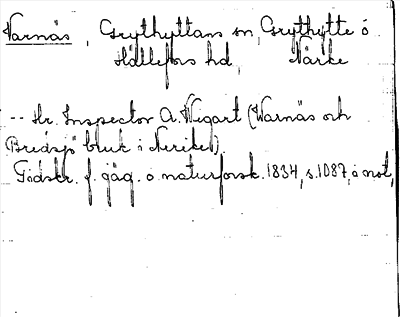 Varnäs, Grythyttans sn, Grythytte o
Hällefors hd, Närke
-- Hr. Inspector A. Wegart (Warnäs och
Bredsjö bruk i Nerike).
Tidskr. f. jäg. o. naturforsk. 1834, s. 1087, i not,